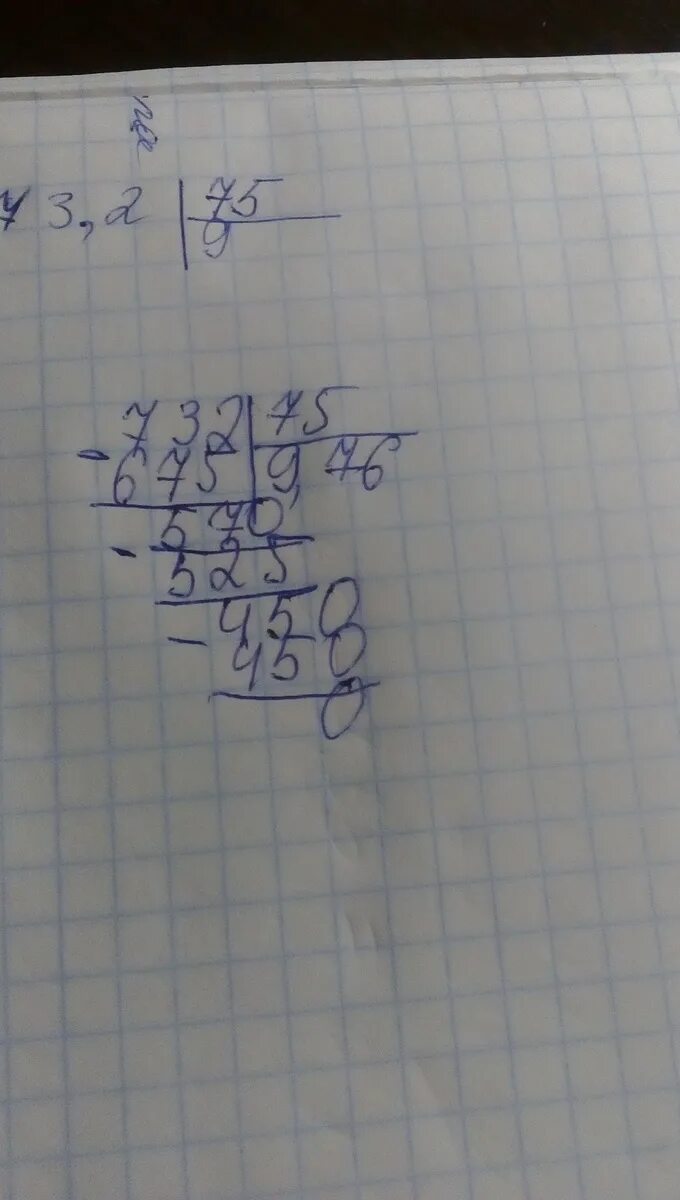 73,2 75
9
732 75
- 675 9,76
570
- 525
450
- 450
0